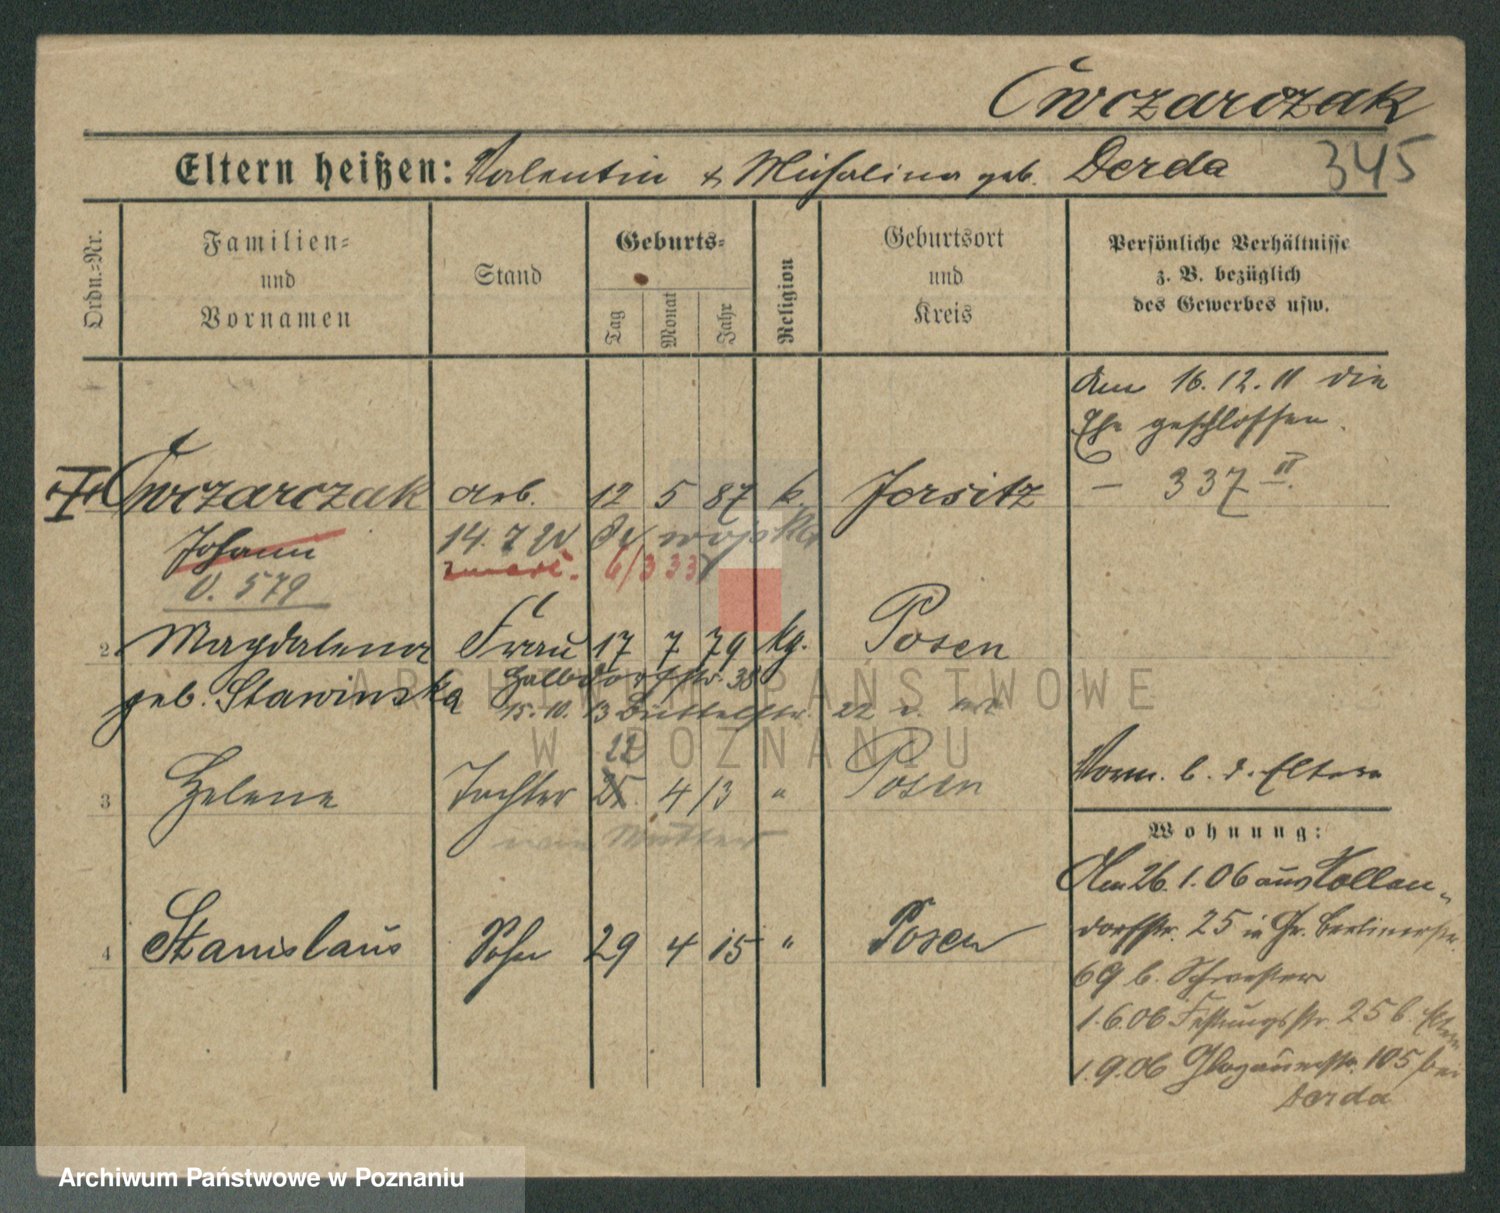 Owczarczak
Eltern heißen: Valentin & Michalina geb. Derda 345
Ordn.=Nr.
Familien=
und
Vornamen
Stand
Geburts=
Tag
Monat
Jahr
Religion
Geburtsort
und
Kreis
Persönliche Verhältnisse
z. B. bezüglich
des Gewerbes usw.
Am 16.12.11 die
Ehe geschlossen.
— 337 II.
Owczarczak Arb. 12 5 87 k. Jersitz
Johann 14. 7
V. 579 zmarł. 6/3 33
2 Magdalena Frau 17 7 79 kg. Posen
geb. Stawinska Halbdorfstr. 38
15.10.13 Büttelstr. 22
22
3 Helene Tochter 25. 4 13 " Posen
Vorm. b. d. Eltern
wie Mutter
Wohnung:
Am 26.1.06 aus Kollen-
dorfstr. 25 in Gr. Berlinerstr.
4 Stanislaus Sohn 29 4 15 " Posen
69 b. Schwester
1.6.06 Festungsstr. 25 b. Eltern
1.9.06 Glogauerstr. 105 bei
Derda
ARCHIWUM PAŃSTWOWE
W POZNANIU
Archiwum Państwowe w Poznaniu